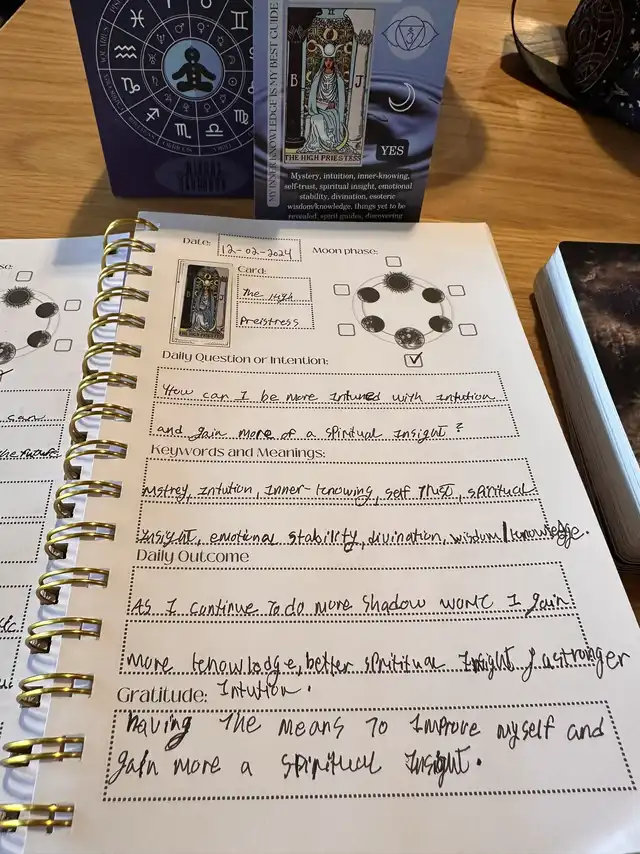 MY INNER KNOWLEDGE IS MY BEST GUIDE
B J
THE HIGH PRIESTESS
YES
Mystery, intuition, inner-knowing,
self-trust, spiritual insight, emotional
stability, divination, esoteric
wisdom/knowledge, things yet to be
revealed, spirit guides, discovering
Date: 12-02-2024 Moon phase:
Card:
The High
Preistress
Daily Question or Intention:
How can I be more intuned with intution
and gain more of a spiritual insight?
Keywords and Meanings:
Mstrey, Intution, Inner-knowing, self trust, spiritual
insight, emotional stability, divination, wisdom/knowledge.
Daily Outcome
As I continue to do more shadow work I gain
more knowledge, better spiritual insight & a stronger
Intution.
Gratitude:
having the means to improve myself and
gain more a spiritual insight.